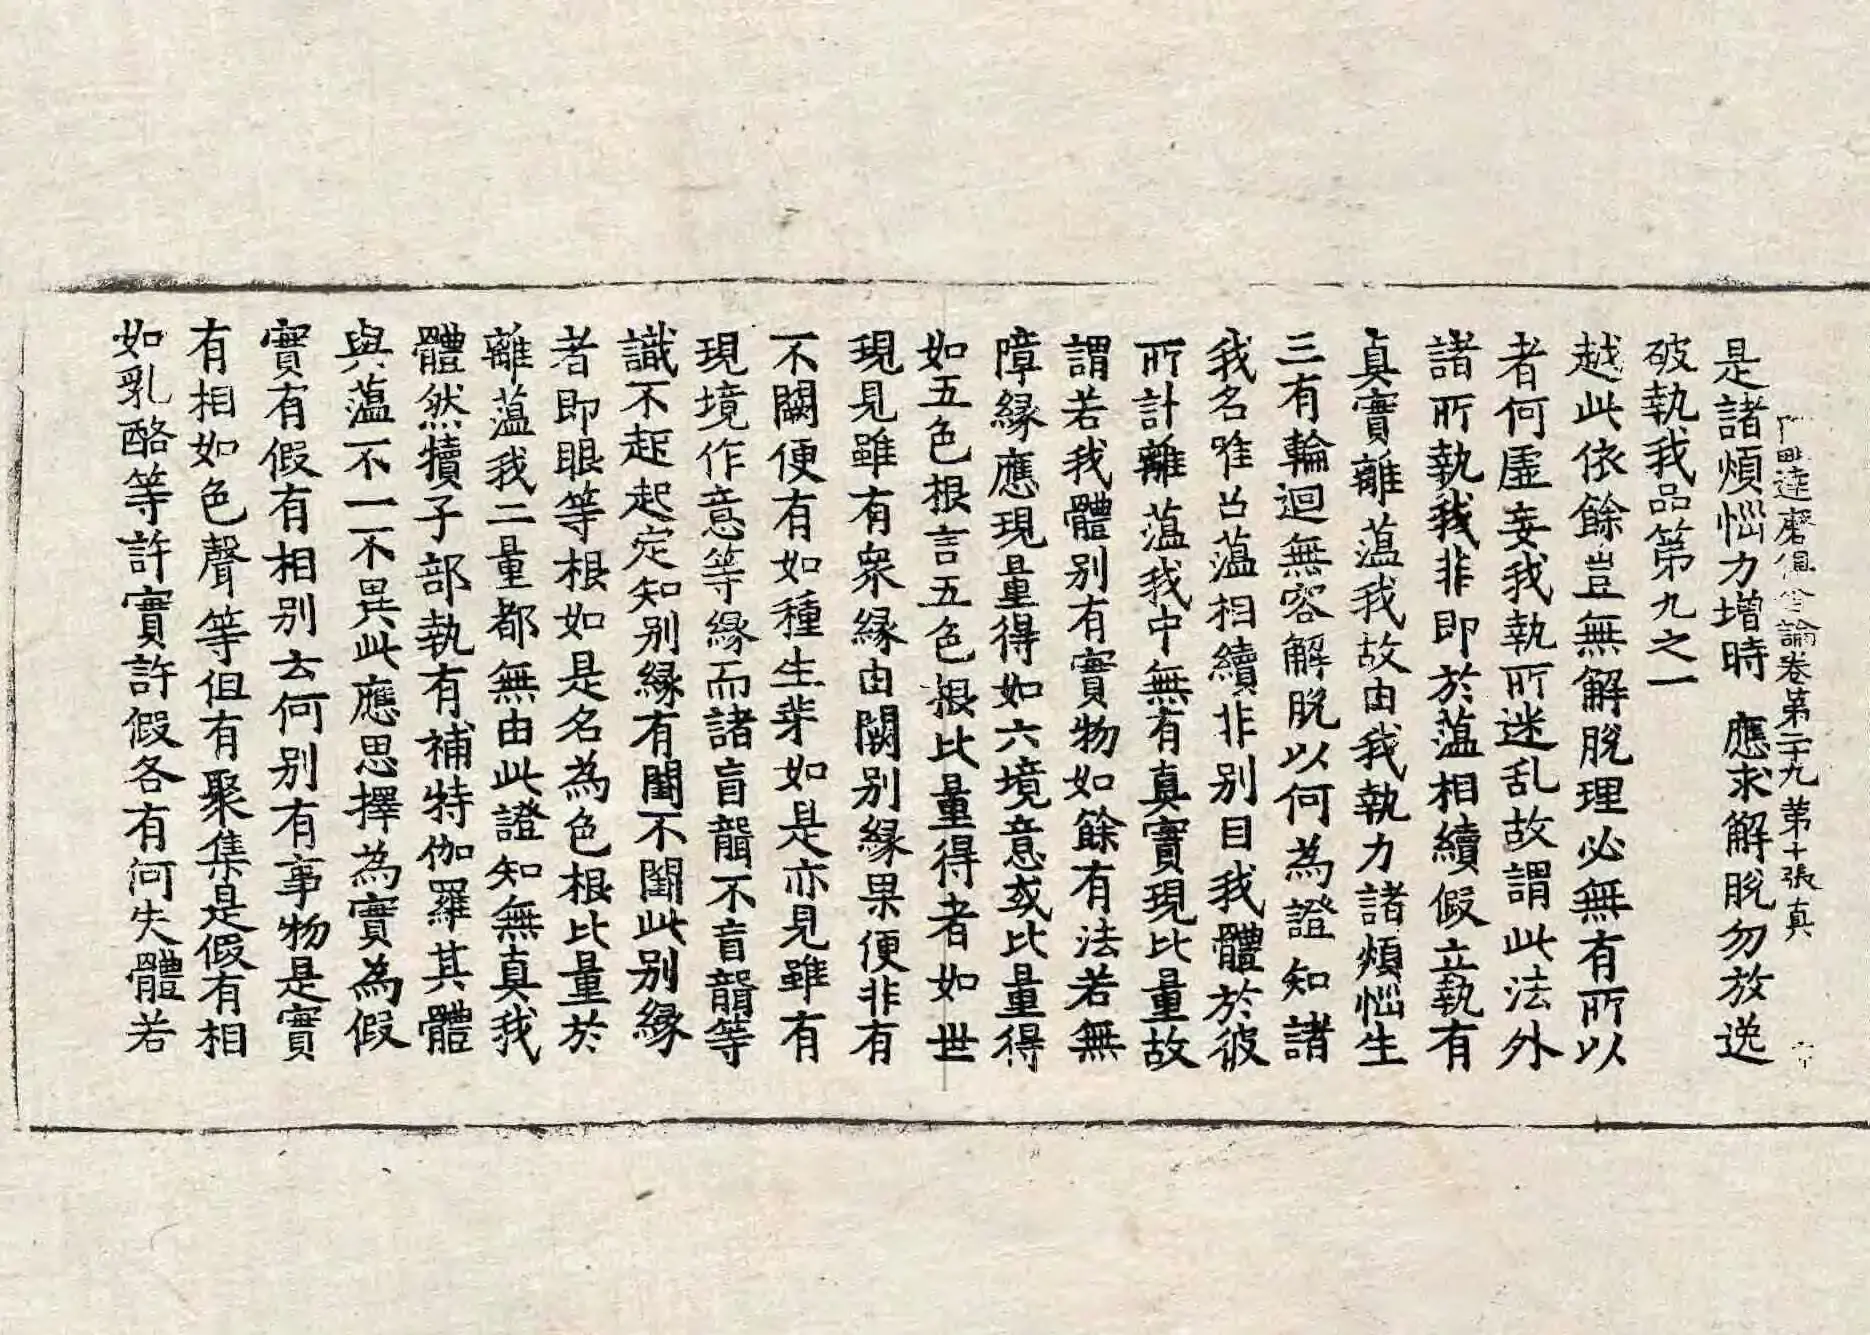 達磨俱舍論卷第二十九 第十張 真
是諸煩惱力增時 應求解脫勿放逸
破執我品第九之一
越此依餘豈無解脫理必無有所以
者何虛妄我執所迷乱故謂此法外
諸所執我非即於蘊相續假立執有
真實離蘊我故由我執力諸煩惱生
三有輪迴無容解脫以何為證知諸
我名唯召蘊相續非別目我體於彼
所計離蘊我中無有真實現比量故
謂若我體別有實物如餘有法若無
障緣應現量得如六境意或比量得
如五色根言五色根比量得者如世
現見雖有衆緣由闕別緣果便非有
不闕便有如種生芽如是亦見雖有
現境作意等緣而諸盲聾不盲聾等
識不起起定知別緣有闕不闕此別緣
者即眼等根如是名為色根比量於
離蘊我二量都無由此證知無真我
體然犢子部執有補特伽羅其體
與蘊不一不異此應思擇為實為假
實有假有相別云何別有事物是實
有相如色聲等但有聚集是假有相
如乳酪等許實許假各有何失體若